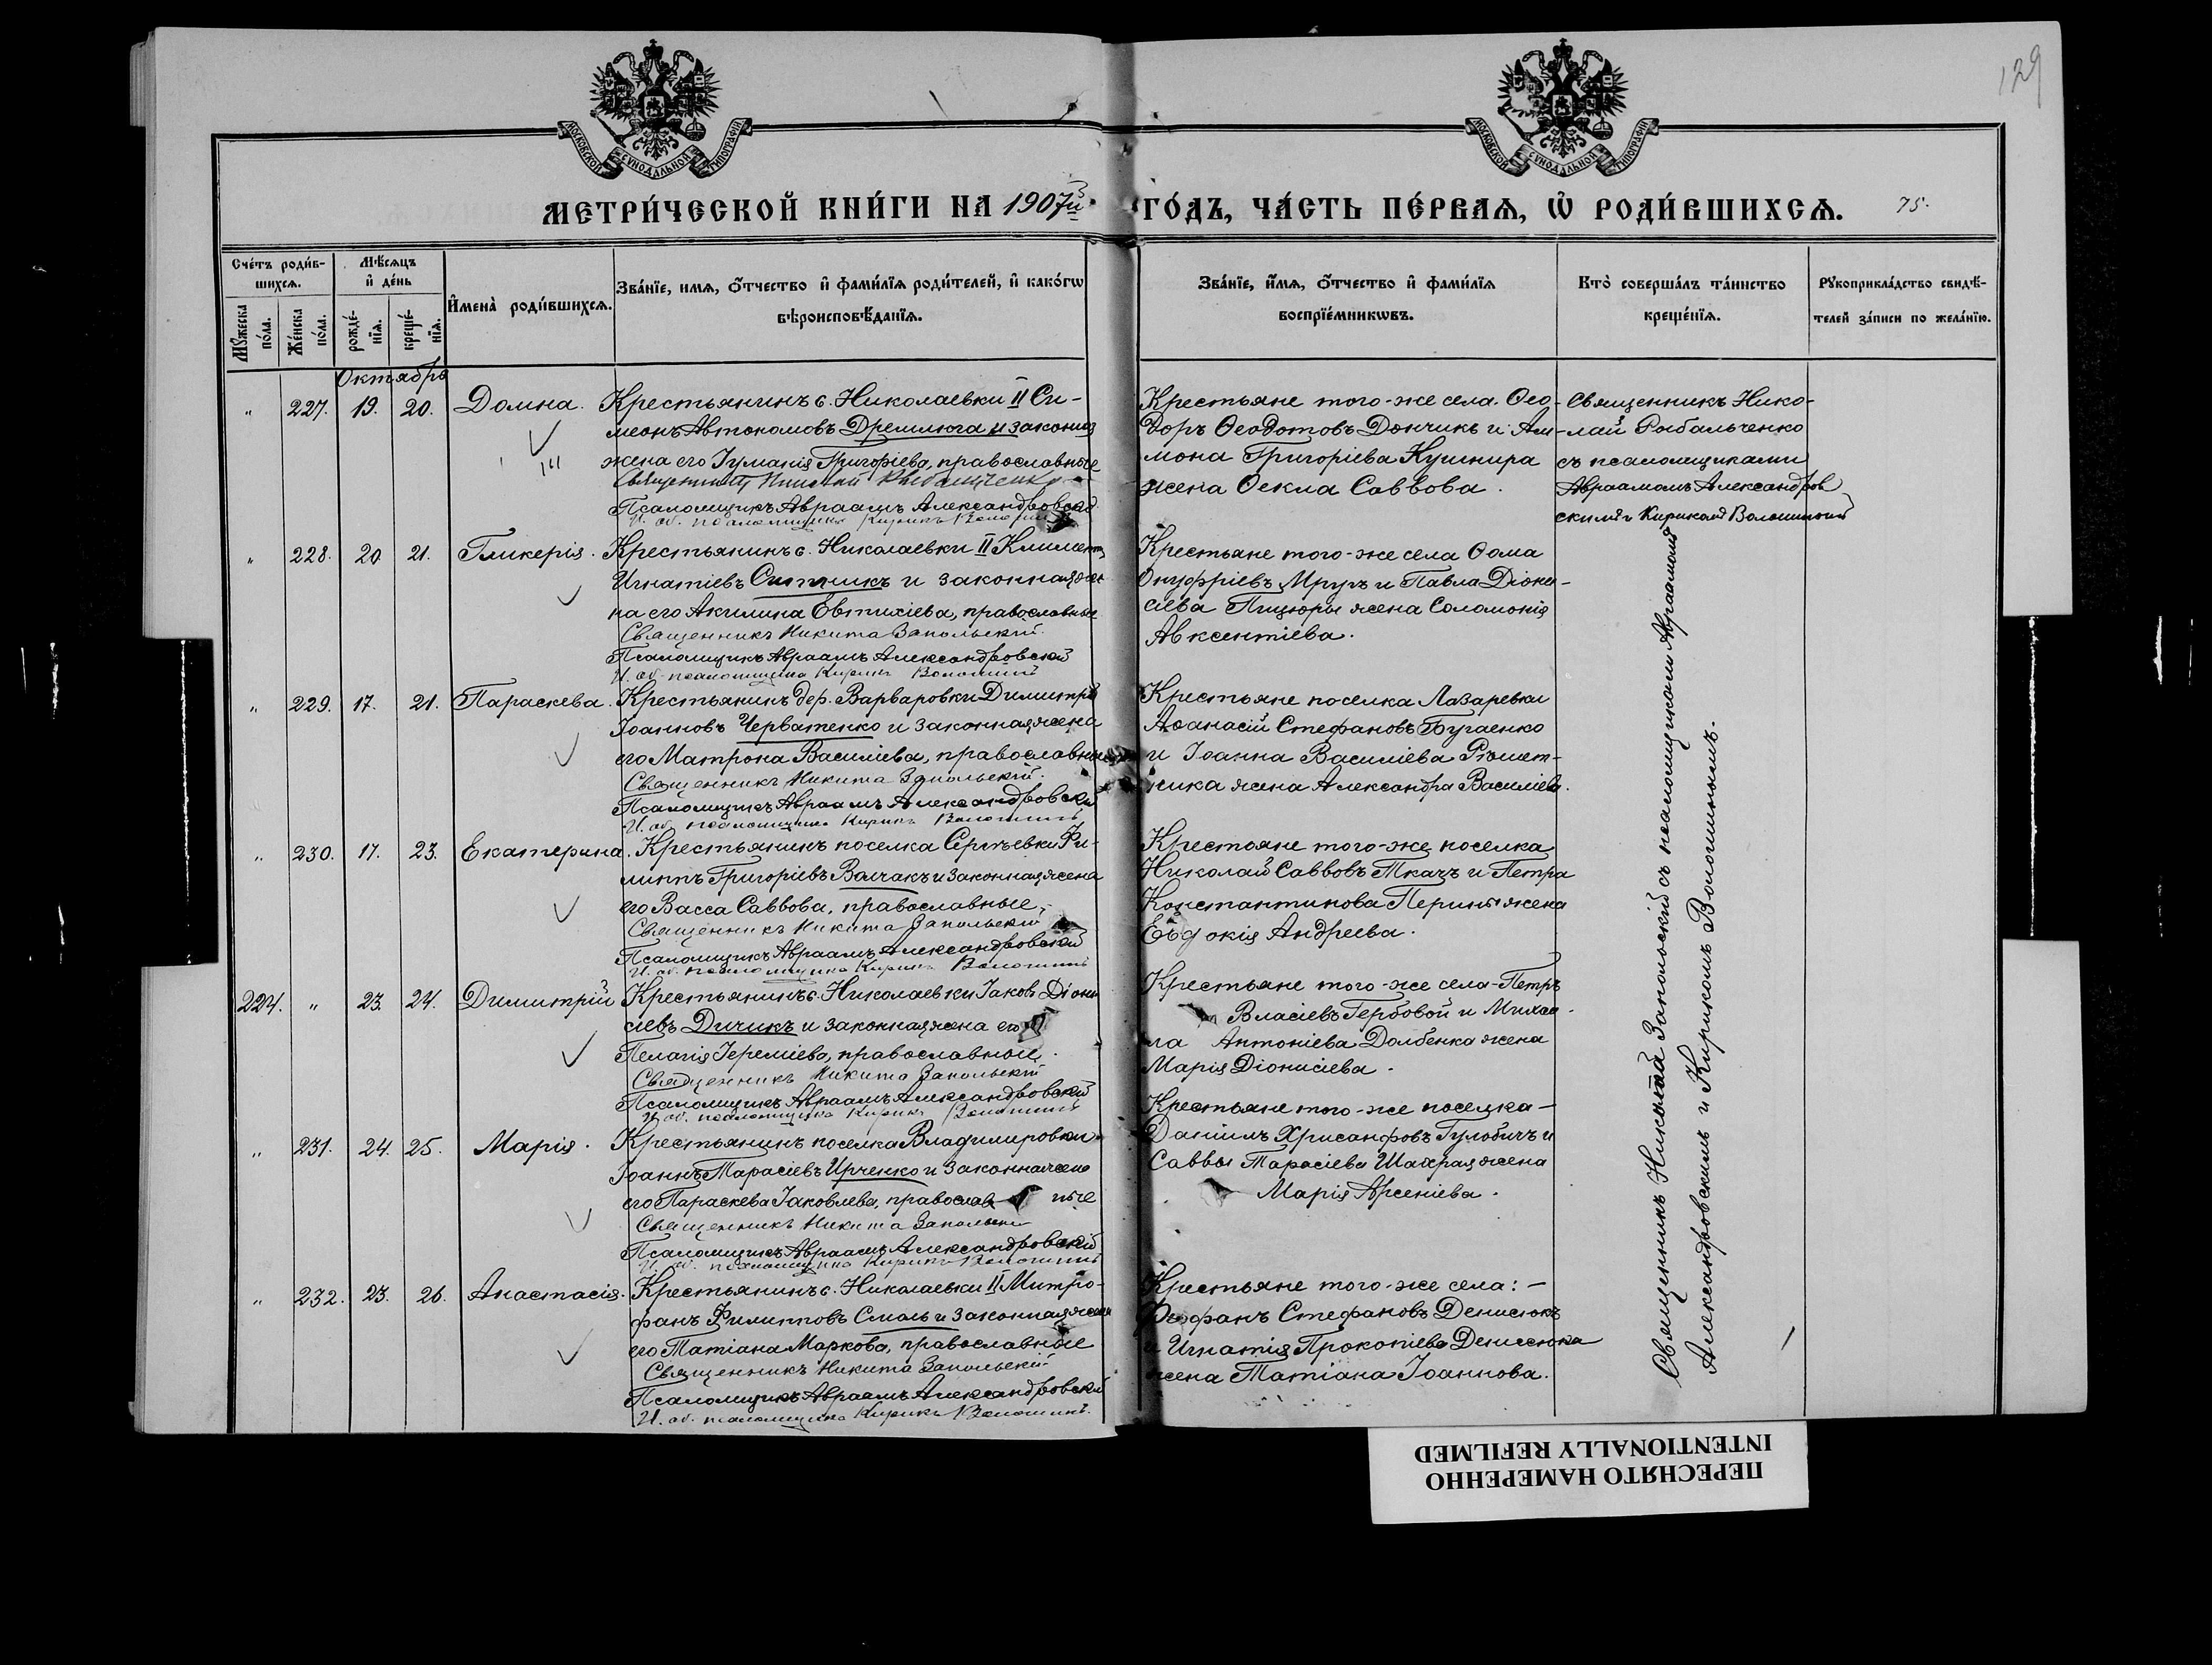 129
МОСКОВСКОЙ СѴНОДАЛЬНОЙ ТИПОГРАФІИ
МОСКОВСКОЙ СѴНОДАЛЬНОЙ ТИПОГРАФІИ
МЕТРИ́ЧЕСКОЙ КНИ́ГИ НА 1907й ГО́ДЪ, ЧА́СТЬ ПЕ́РВАѦ, Ѡ҆ РОДИ́ВШИХСѦ. 75.
Сче́тъ роди́в-
шихсѧ.
Мѹ́жеска по́ла.
Же́нска по́ла.
Мѣ́сѧцъ
и҆ де́нь
рожде́-
нїѧ.
креще́-
нїѧ.
И҆мена̀ роди́вшихсѧ.
Зва́нїе, имѧ, ѻ҆́тчество и҆ фами́лїѧ роди́телей, и҆ како́гѡ
вѣроисповѣ́данїѧ.
Зва́нїе, и҆́мѧ, ѻ҆́тчество и҆ фами́лїѧ
воспрїе́мникѡвъ.
Кто̀ соверша́лъ та́инство
креще́нїѧ.
Рѹкоприкла́дство свидѣ́-
телей за́писи по жела́нїю.
Октябрь
" 227. 19. 20. Домна. Крестьянинъ с. Николаевки II Си-
меонъ Автономовъ Дремлюга и законная
жена его Іуліанія Григоріева, православные
Священникъ Николай Рыбальченко
Псаломщикъ Авраамъ Александровскій
И. об. псаломщика Кирикъ Волошинъ
Крестьяне того-же села. Ѳео-
доръ Ѳеодотовъ Дончикъ и
Григоріева Кушнира
жена Ѳекла Саввова.
Священникъ Нико-
лай Рыбальченко
съ псаломщиками
Авраамомъ Александров
скимъ и Кирикомъ Волошинымъ
" 228. 20 21. Гликерія. Крестьянинъ с. Николаевки II Климентъ
Игнатіевъ Ситникъ и законная же-
на его Акилина Евтихіева, православные
Священникъ Никита Запольскій.
Псаломщикъ Авраамъ Александровскій
И. об. псаломщика Кирикъ Волошинъ
Крестьяне того-же села Ѳома
Онуфріевъ и Павла Діони-
сіева Пицюры жена Соломонія
Авксентіева.
" 229. 17. 21. Параскева. Крестьянинъ дер. Варваровки Димитрій
Іоанновъ Черватенко и законная жена
его Матрона Василіева, православные
Священникъ Никита Запольскій.
Псаломщикъ Авраамъ Александровскій
И. об. псаломщика Кирикъ Волошинъ
Крестьяне поселка Лазаревки
Аѳанасій Стефановъ Бугаенко
и Іоанна Василіева Рѣшет-
ника жена Александра Василіева.
" 230. 17. 23. Екатерина. Крестьянинъ поселка Сергѣевки Фи-
липпъ Григоріевъ Волчакъ и законная жена
его Васса Саввова, православные,
Священникъ Никита Запольскій
Псаломщикъ Авраамъ Александровскій
И. об. псаломщика Кирикъ Волошинъ
Крестьяне того-же поселка
Николай Саввовъ Ткачъ и Петра
Константинова Перины жена
Евдокія Андреева.
224. " 23. 24. Димитрій Крестьянинъ с. Николаевки Іаковъ Діони
сіевъ Дичикъ и законная жена его
Пелагія Іереміева, православные.
Священникъ Никита Запольскій
Псаломщикъ Авраамъ Александровскій
И. об. псаломщика Кирикъ Волошинъ
Крестьяне того-же села-Петръ
Власіевъ Гербовой и Михаи-
ла Антоніева Долбенка жена
Марія Діонисіева.
" 231. 24. 25. Марія. Крестьянинъ поселка Владимировки
Іоаннъ Тарасіевъ Ирченко и законная жена
его Параскева Іаковлева, православ ные
Священникъ Никита Запольскій
Псаломщикъ Авраамъ Александровскій
И. об. псаломщика Кирикъ Волошинъ
Крестьяне того-же поселка-
Даніилъ Хрисанфовъ Гулобичъ и
Саввы Тарасіева Шахрая жена
Марія Арсеніева.
" 232. 23. 26. Анастасія. Крестьянинъ с. Николаевки II Митро-
фанъ Филипповъ Смоль и законная жена
его Татіана Маркова, православные
Священникъ Никита Запольскій
Псаломщикъ Авраамъ Александровскій
И. об. псаломщика Кирикъ Волошинъ.
Крестьяне того-же села:-
Ѳеофанъ Стефановъ Денисюкъ
и Игнатія Прокопіева Денисюка
жена Татіана Іоаннова.
Священникъ Запольскій съ псаломщиками Авраамомъ
Александровскимъ и Кирикомъ Волошинымъ.
ПЕРЕСНЯТО НАМЕРЕННО
INTENTIONALLY REFILMED